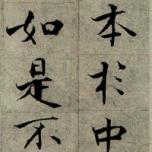 本於中
如是不